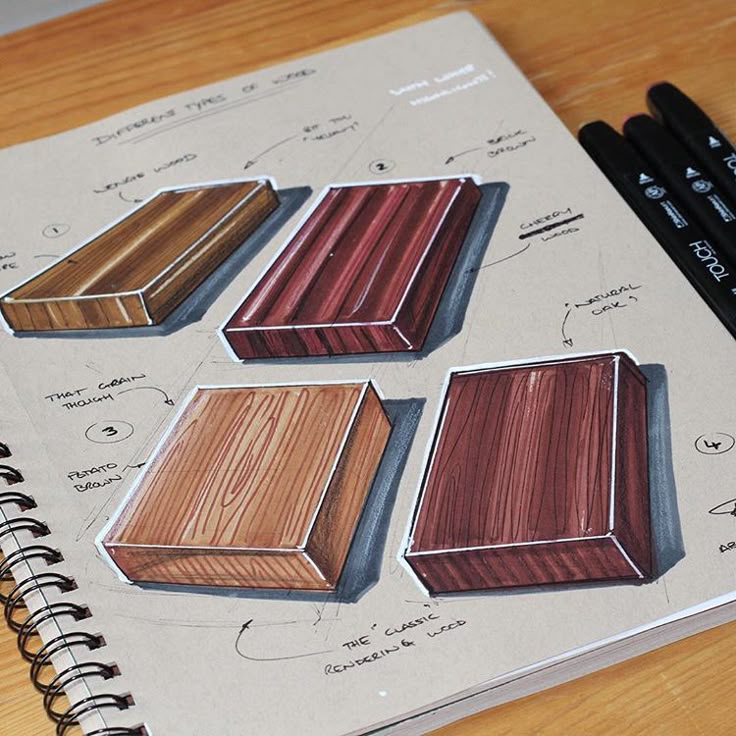 DIFFERENT TYPES OF WOOD
WENGE WOOD
BIT TOO
"HEAVY"
2
BRICK
BROWN
1
CHERRY
WOOD
"NATURAL
OAK"
THAT GRAIN
THOUGH
3
POTATO
BROWN
4
THE "CLASSIC"
RENDERING WOOD
TOUCH
TOUCH